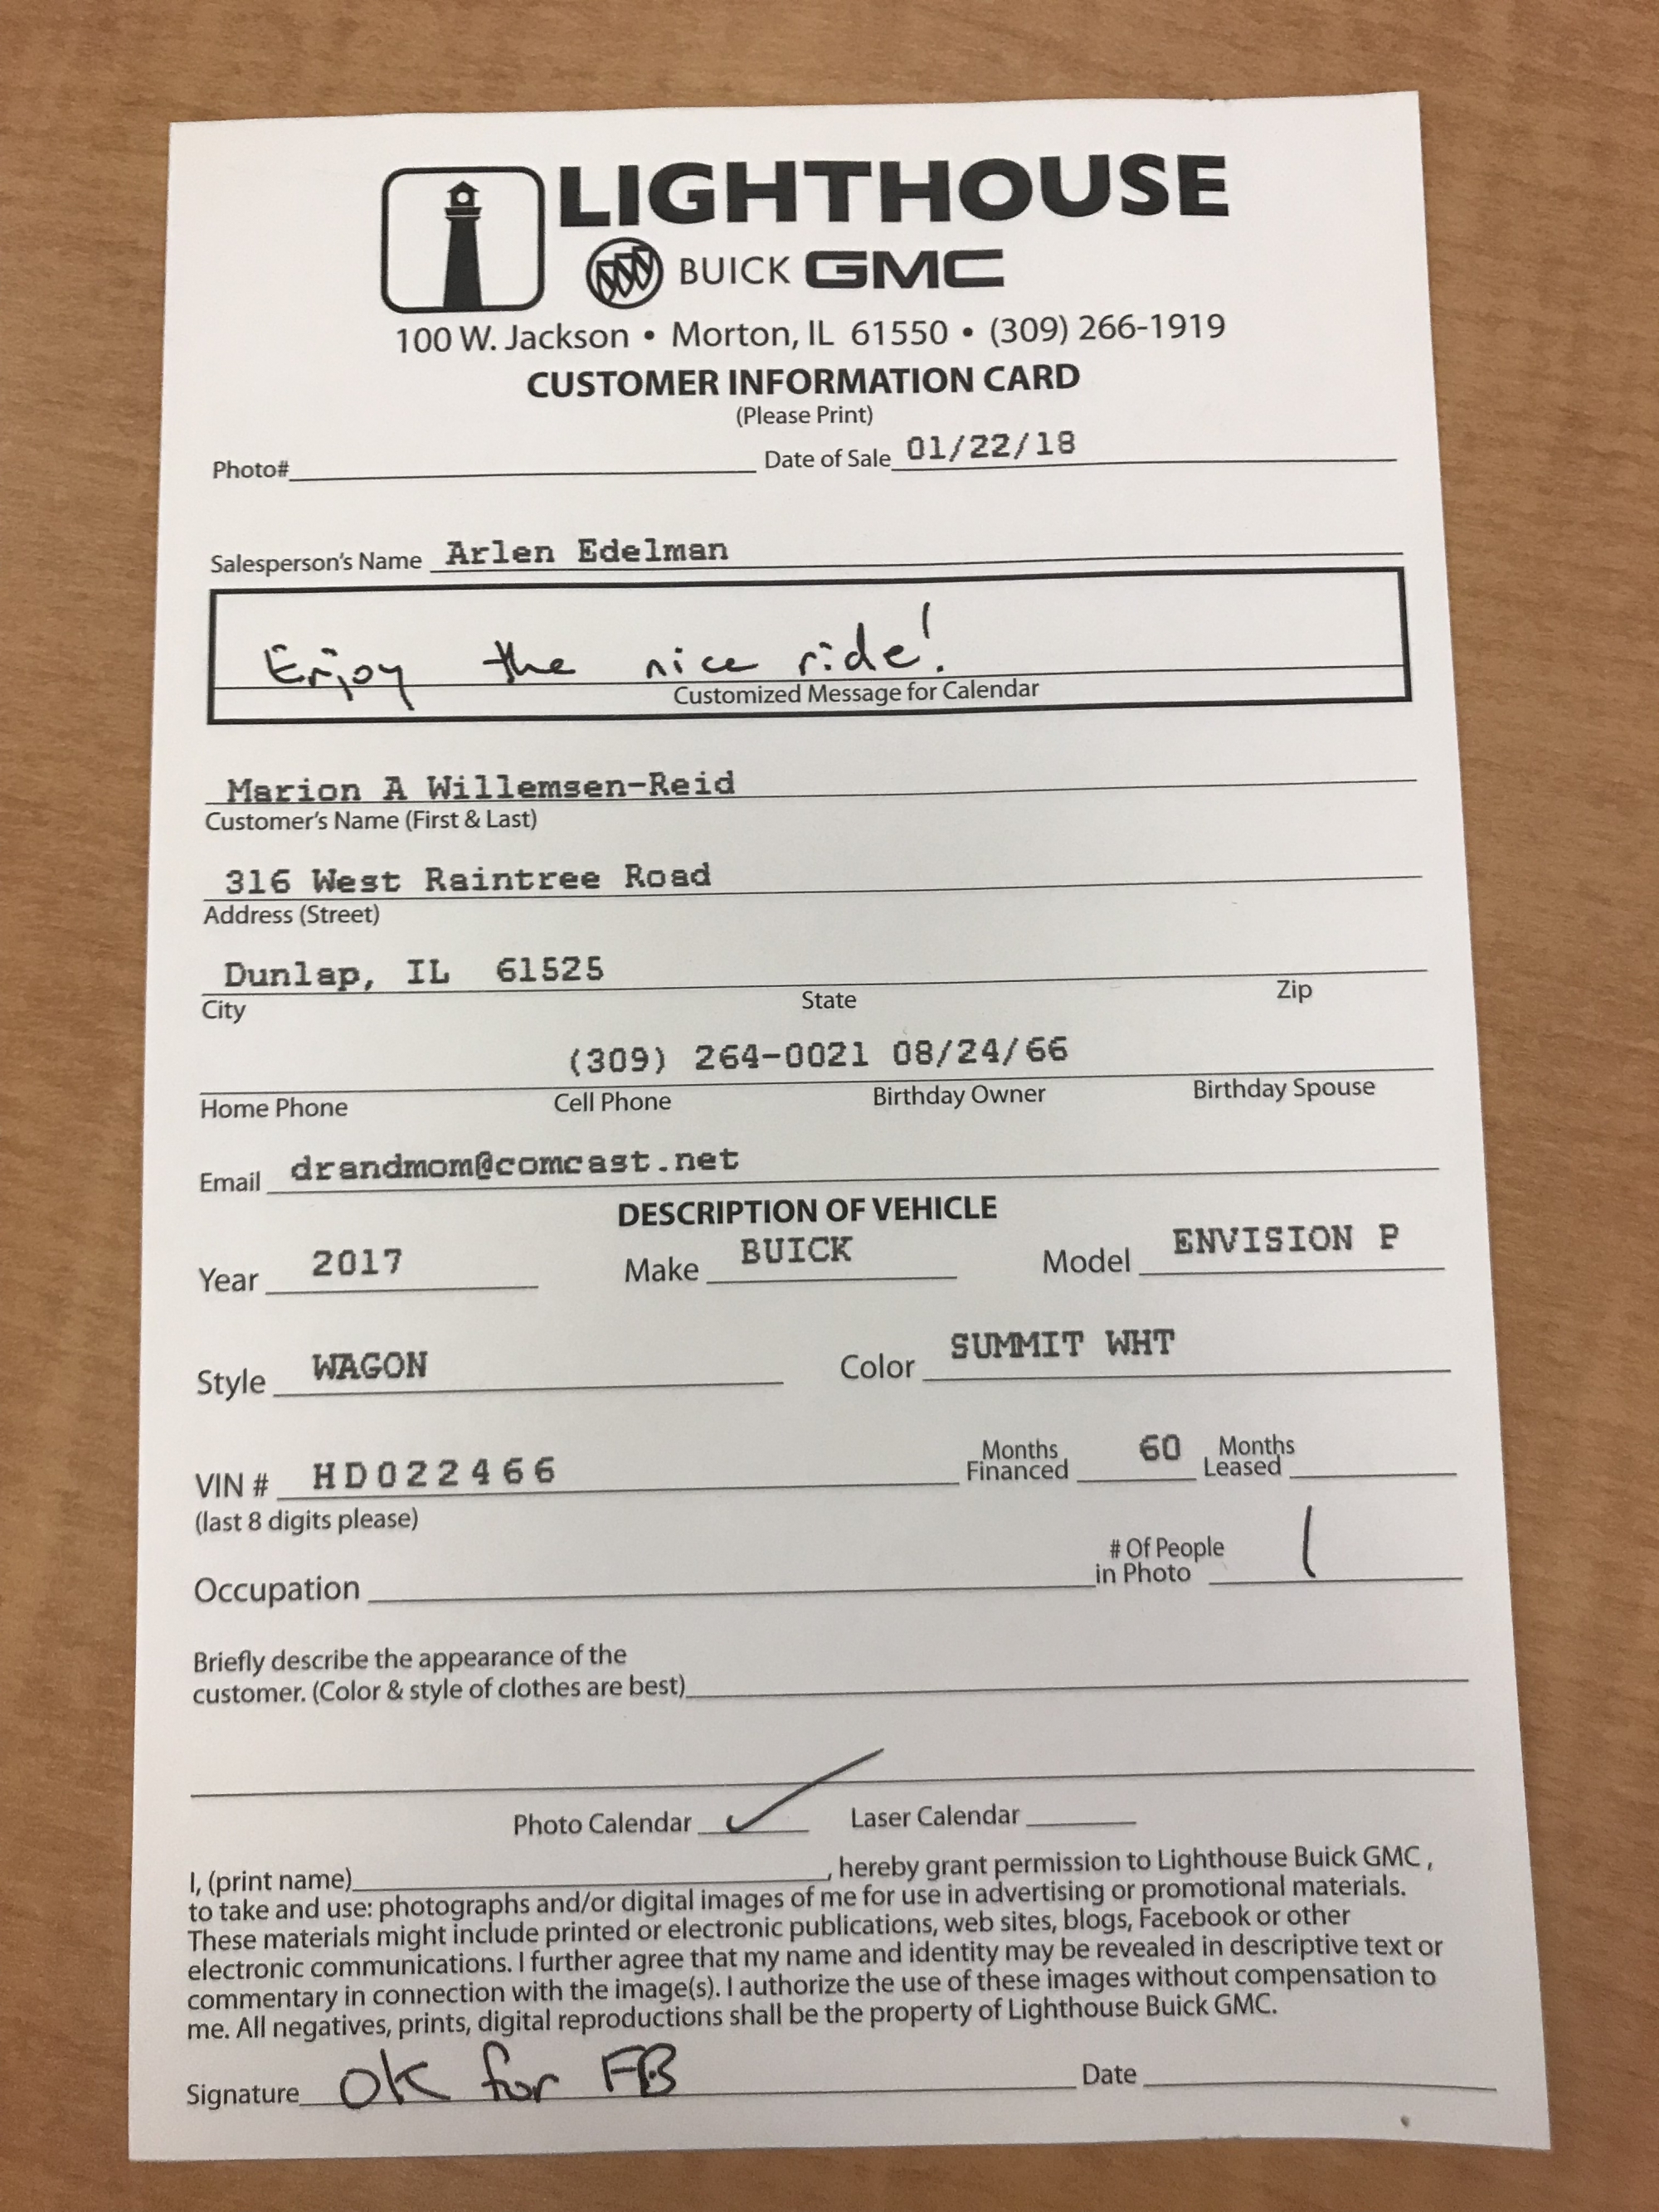 LIGHTHOUSE
BUICK GMC
100 W. Jackson • Morton, IL 61550 • (309) 266-1919
CUSTOMER INFORMATION CARD
(Please Print)
Photo# Date of Sale 01/22/18
Salesperson's Name Arlen Edelman
Enjoy the nice ride!
Customized Message for Calendar
Marion A Willemsen-Reid
Customer's Name (First & Last)
316 West Raintree Road
Address (Street)
Dunlap, IL 61525
City State Zip
(309) 264-0021 08/24/66
Home Phone Cell Phone Birthday Owner Birthday Spouse
Email drandmom@comcast.net
DESCRIPTION OF VEHICLE
Year 2017 Make BUICK Model ENVISION P
Style WAGON Color SUMMIT WHT
VIN # HD022466 Months Financed 60 Months Leased
(last 8 digits please)
Occupation # Of People in Photo 1
Briefly describe the appearance of the
customer. (Color & style of clothes are best)
Photo Calendar ✓ Laser Calendar
I, (print name) , hereby grant permission to Lighthouse Buick GMC ,
to take and use: photographs and/or digital images of me for use in advertising or promotional materials.
These materials might include printed or electronic publications, web sites, blogs, Facebook or other
electronic communications. I further agree that my name and identity may be revealed in descriptive text or
commentary in connection with the image(s). I authorize the use of these images without compensation to
me. All negatives, prints, digital reproductions shall be the property of Lighthouse Buick GMC.
Signature OK for FB Date